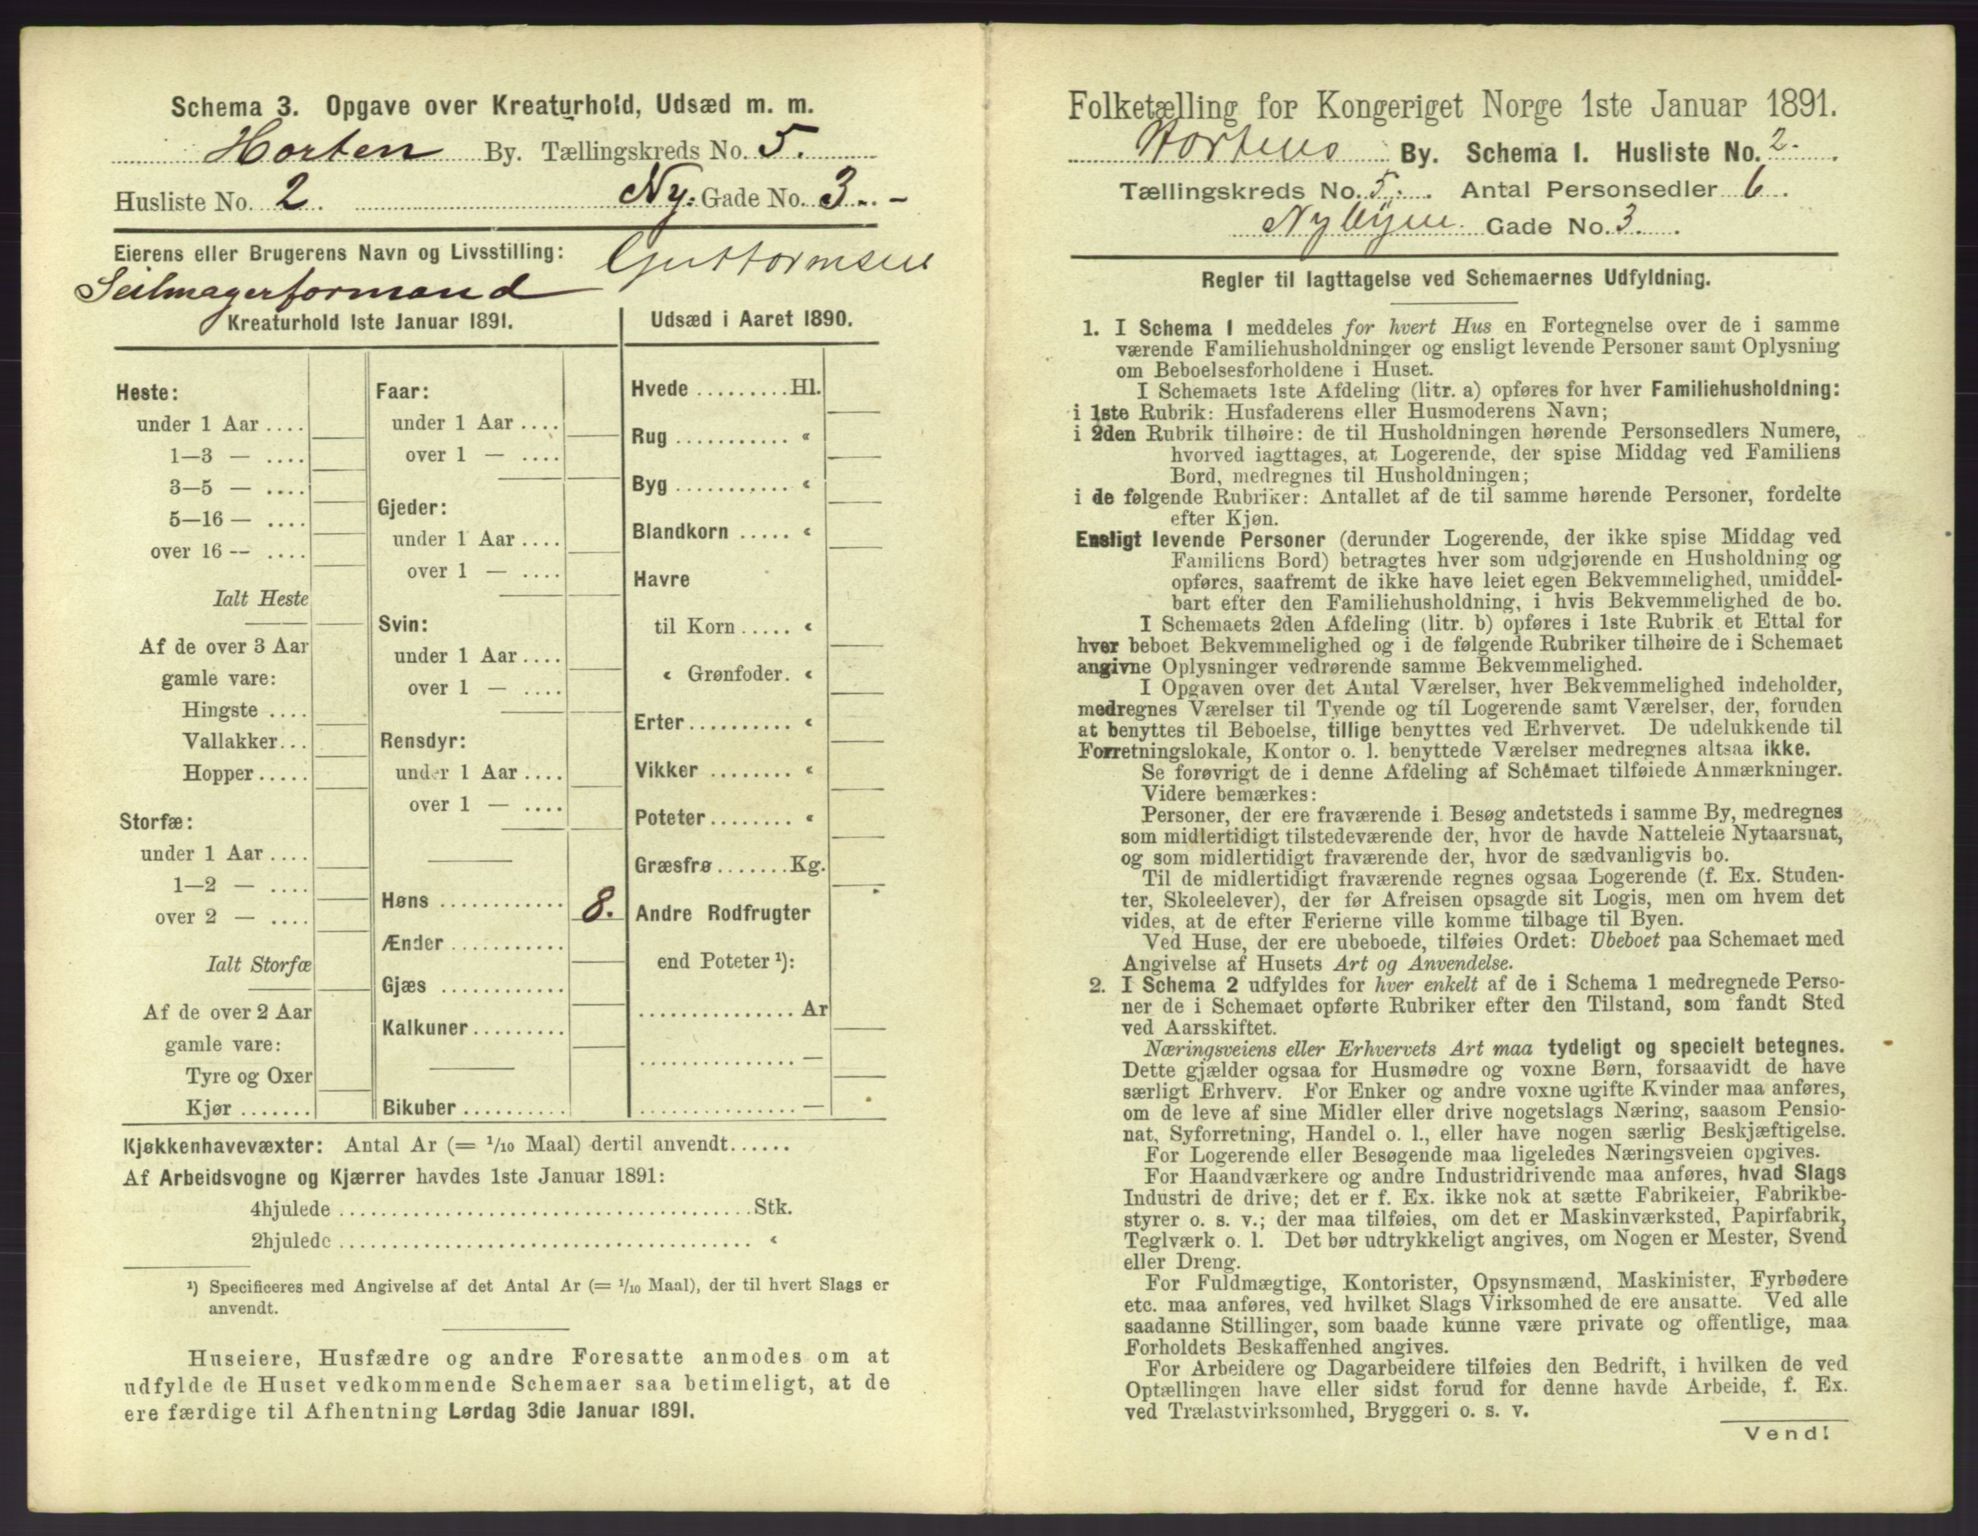 Schema 3. Opgave over Kreaturhold, Udsæd m. m.
Horten By. Tællingskreds No. 5.
Husliste No. 2. Ny. Gade No. 3.
Eierens eller Brugerens Navn og Livsstilling: Guttormsen
Seilmagerformand
Kreaturhold 1ste Januar 1891.
Heste:
under 1 Aar ....
1—3 — ....
3—5 — ....
5—16 — ....
over 16 -- ....
Ialt Heste
Af de over 3 Aar
gamle vare:
Hingste ....
Vallakker...
Hopper .....
Storfæ:
under 1 Aar ....
1—2 — ....
over 2 — ....
Ialt Storfæ
Af de over 2 Aar
gamle vare:
Tyre og Oxer
Kjør .......
Faar:
under 1 Aar ....
over 1 — ....
Gjeder:
under 1 Aar ....
over 1 — ....
Svin:
under 1 Aar ....
over 1 — ....
Rensdyr:
under 1 Aar ....
over 1 — ....
Høns ............ 8.
Ænder ...........
Gjæs ............
Kalkuner.........
Bikuber ..........
Udsæd i Aaret 1890.
Hvede .........Hl.
Rug ........... “
Byg ........... “
Blandkorn ..... “
Havre
til Korn ..... “
“ Grønfoder. “
Erter.......... “
Vikker ........ “
Poteter........ “
Græsfrø.......Kg.
Andre Rodfrugter
end Poteter ¹):
............... Ar
............... —
............... —
Kjøkkenhavevæxter: Antal Ar (= 1/10 Maal) dertil anvendt......
Af Arbeidsvogne og Kjærrer havdes 1ste Januar 1891:
4hjulede .......................................Stk.
2hjulede ....................................... “
¹) Specificeres med Angivelse af det Antal Ar (= 1/10 Maal), der til hvert Slags er
anvendt.
Huseiere, Husfædre og andre Foresatte anmodes om at
udfylde de Huset vedkommende Schemaer saa betimeligt, at de
ere færdige til Afhentning Lørdag 3die Januar 1891.
Folketælling for Kongeriget Norge 1ste Januar 1891.
Hortens By. Schema 1. Husliste No. 2.
Tællingskreds No. 5. Antal Personsedler 6.
Nybyen. Gade No. 3.
Regler til Iagttagelse ved Schemaernes Udfyldning.
1. I Schema 1 meddeles for hvert Hus en Fortegnelse over de i samme
værende Familiehusholdninger og ensligt levende Personer samt Oplysning
om Beboelsesforholdene i Huset.
I Schemaets 1ste Afdeling (litr. a) opføres for hver Familiehusholdning:
i 1ste Rubrik: Husfaderens eller Husmoderens Navn;
i 2den Rubrik tilhøire: de til Husholdningen hørende Personsedlers Numere,
hvorved iagttages, at Logerende, der spise Middag ved Familiens
Bord, medregnes til Husholdningen;
i de følgende Rubriker: Antallet af de til samme hørende Personer, fordelte
efter Kjøn.
Ensligt levende Personer (derunder Logerende, der ikke spise Middag ved
Familiens Bord) betragtes hver som udgjørende en Husholdning og
opføres, saafremt de ikke have leiet egen Bekvemmelighed, umiddel-
bart efter den Familiehusholdning, i hvis Bekvemmelighed de bo.
I Schemaets 2den Afdeling (litr. b) opføres i 1ste Rubrik et Ettal for
hver beboet Bekvemmelighed og i de følgende Rubriker tilhøire de i Schemaet
angivne Oplysninger vedrørende samme Bekvemmelighed.
I Opgaven over det Antal Værelser, hver Bekvemmelighed indeholder,
medregnes Værelser til Tyende og til Logerende samt Værelser, der, foruden
at benyttes til Beboelse, tillige benyttes ved Erhvervet. De udelukkende til
Forretningslokale, Kontor o. l. benyttede Værelser medregnes altsaa ikke.
Se forøvrigt de i denne Afdeling af Schemaet tilføiede Anmærkninger.
Videre bemærkes:
Personer, der ere fraværende i Besøg andetsteds i samme By, medregnes
som midlertidigt tilstedeværende der, hvor de havde Natteleie Nytaarsnat,
og som midlertidigt fraværende der, hvor de sædvanligvis bo.
Til de midlertidigt fraværende regnes ogsaa Logerende (f. Ex. Studen-
ter, Skoleelever), der før Afreisen opsagde sit Logis, men om hvem det
vides, at de efter Ferierne ville komme tilbage til Byen.
Ved Huse, der ere ubeboede, tilføies Ordet: Ubeboet paa Schemaet med
Angivelse af Husets Art og Anvendelse.
2. I Schema 2 udfyldes for hver enkelt af de i Schema 1 medregnede Perso-
ner de i Schemaet opførte Rubriker efter den Tilstand, som fandt Sted
ved Aarsskiftet.
Næringsveiens eller Erhvervets Art maa tydeligt og specielt betegnes.
Dette gjælder ogsaa for Husmødre og voxne Børn, forsaavidt de have
særligt Erhverv. For Enker og andre voxne ugifte Kvinder maa anføres,
om de leve af sine Midler eller drive nogetslags Næring, saasom Pensio-
nat, Syforretning, Handel o. l., eller have nogen særlig Beskjæftigelse.
For Logerende eller Besøgende maa ligeledes Næringsveien opgives.
For Haandværkere og andre Industridrivende maa anføres, hvad Slags
Industri de drive; det er f. Ex. ikke nok at sætte Fabrikeier, Fabrikbe-
styrer o. s. v.; der maa tilføies, om det er Maskinværksted, Papirfabrik,
Teglværk o. l. Det bør udtrykkeligt angives, om Nogen er Mester, Svend
eller Dreng.
For Fuldmægtige, Kontorister, Opsynsmænd, Maskinister, Fyrbødere
etc. maa anføres, ved hvilket Slags Virksomhed de ere ansatte. Ved alle
saadanne Stillinger, som baade kunne være private og offentlige, maa
Forholdets Beskaffenhed angives.
For Arbeidere og Dagarbeidere tilføies den Bedrift, i hvilken de ved
Optællingen have eller sidst forud for denne havde Arbeide, f. Ex.
ved Trælastvirksomhed, Bryggeri o. s. v.
Vend!